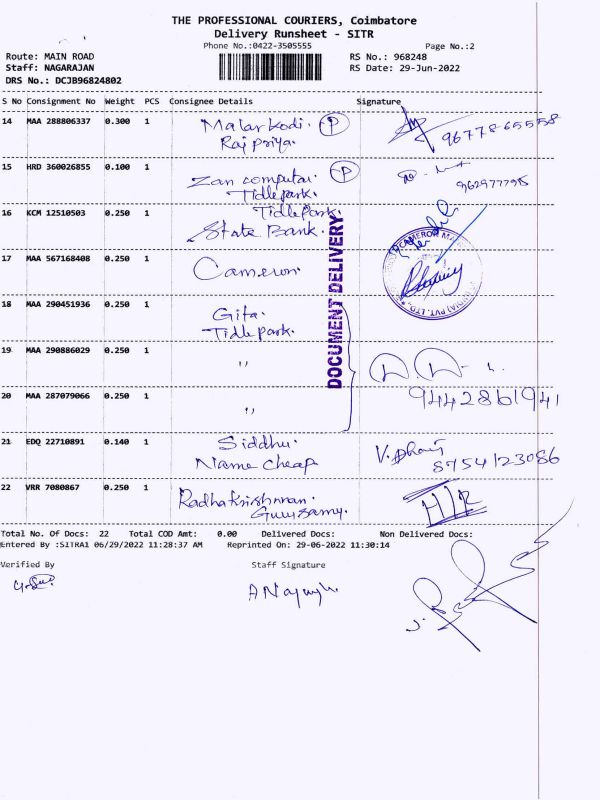 THE PROFESSIONAL COURIERS, Coimbatore
Delivery Runsheet - SITR
Phone No.:0422-3505555
Page No.:2
Route: MAIN ROAD
RS No.: 968248
Staff: NAGARAJAN
RS Date: 29-Jun-2022
DRS No.: DCJB96824802
S No Consignment No Weight PCS Consignee Details Signature
14 MAA 288806337 0.300 1 Malarkodi. P
Rajpriya.
9677865558
15 HRD 360026855 0.100 1 Zan computar. P
Tidlepark.
962977795
16 KCM 12510503 0.250 1 Tidlepark.
State Bank.
17 MAA 567168408 0.250 1 Cameron.
DOCUMENT DELIVERY
18 MAA 290451936 0.250 1 Gita.
Tidlepark.
19 MAA 290886029 0.250 1 ,,
20 MAA 287079066 0.250 1 ,,
9442861941
21 EDQ 22710891 0.140 1 Siddhu.
Name cheap
8754123086
22 VRR 7080867 0.250 1 Radhakrishnnan.
Guusamy.
H/R
Total No. Of Docs: 22 Total COD Amt: 0.00 Delivered Docs: Non Delivered Docs:
Entered By :SITRA1 06/29/2022 11:28:37 AM Reprinted On: 29-06-2022 11:30:14
Verified By Staff Signature